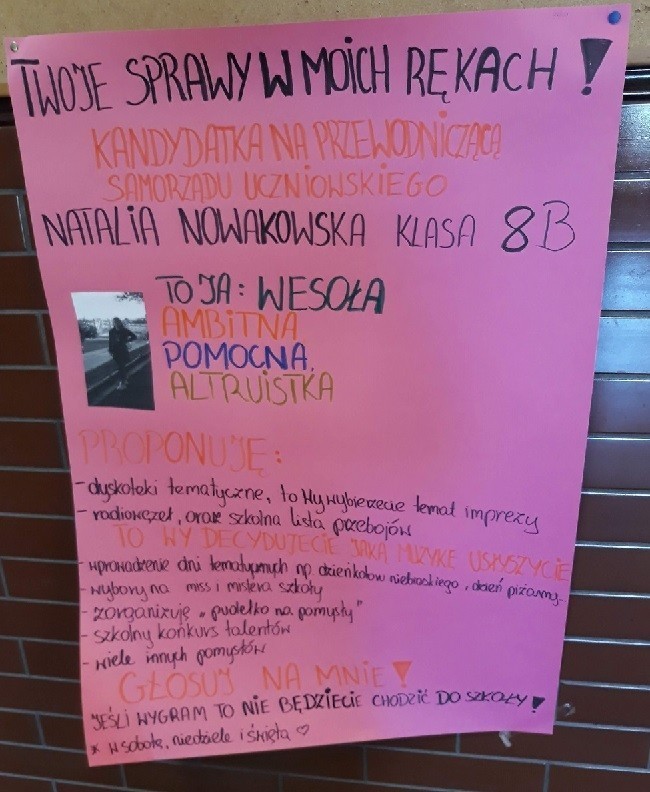 TWOJE SPRAWY W MOICH RĘKACH!
KANDYDATKA NA PRZEWODNICZĄCĄ
SAMORZĄDU UCZNIOWSKIEGO
NATALIA NOWAKOWSKA KLASA 8B
TO JA: WESOŁA
AMBITNA
POMOCNA,
ALTRUISTKA
PROPONUJĘ:
- dyskoteki tematyczne, to Wy wybierzecie temat imprezy
- radiowęzeł, oraz szkolna lista przebojów
TO WY DECYDUJECIE JAKĄ MUZYKĘ USŁYSZYCIE
- wprowadzenie dni tematycznych np. dzień koloru niebieskiego, dzień piżamy.
- wybory na miss i mistera szkoły
- zorganizuję „pudełko na pomysły"
- szkolny konkurs talentów
- wiele innych pomysłów
GŁOSUJ NA MNIE!
JEŚLI WYGRAM TO NIE BĘDZIECIE CHODZIĆ DO SZKOŁY!
* w sobotę, niedziele i święta ♡